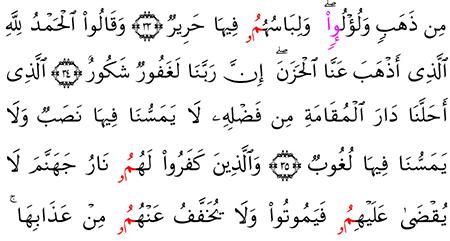 مِن ذَهَبٖ وَلُؤۡلُوٕٖاۖ وَلِبَاسُهُمُۥ فِيهَا حَرِيرٞ ٣٣ وَقَالُواْ ٱلۡحَمۡدُ لِلَّهِ
ٱلَّذِي أَذۡهَبَ عَنَّا ٱلۡحَزَنَۖ إِنَّ رَبَّنَا لَغَفُورٞ شَكُورٞ ٣٤ ٱلَّذِي
أَحَلَّنَا دَارَ ٱلۡمُقَامَةِ مِن فَضۡلِهِۦ لَا يَمَسُّنَا فِيهَا نَصَبٞ وَلَا
يَمَسُّنَا فِيهَا لُغُوبٞ ٣٥ وَٱلَّذِينَ كَفَرُواْ لَهُمُۥ نَارُ جَهَنَّمَ لَا
يُقۡضَىٰ عَلَيۡهِمُۥ فَيَمُوتُواْ وَلَا يُخَفَّفُ عَنۡهُمُۥ مِنۡ عَذَابِهَاۚ